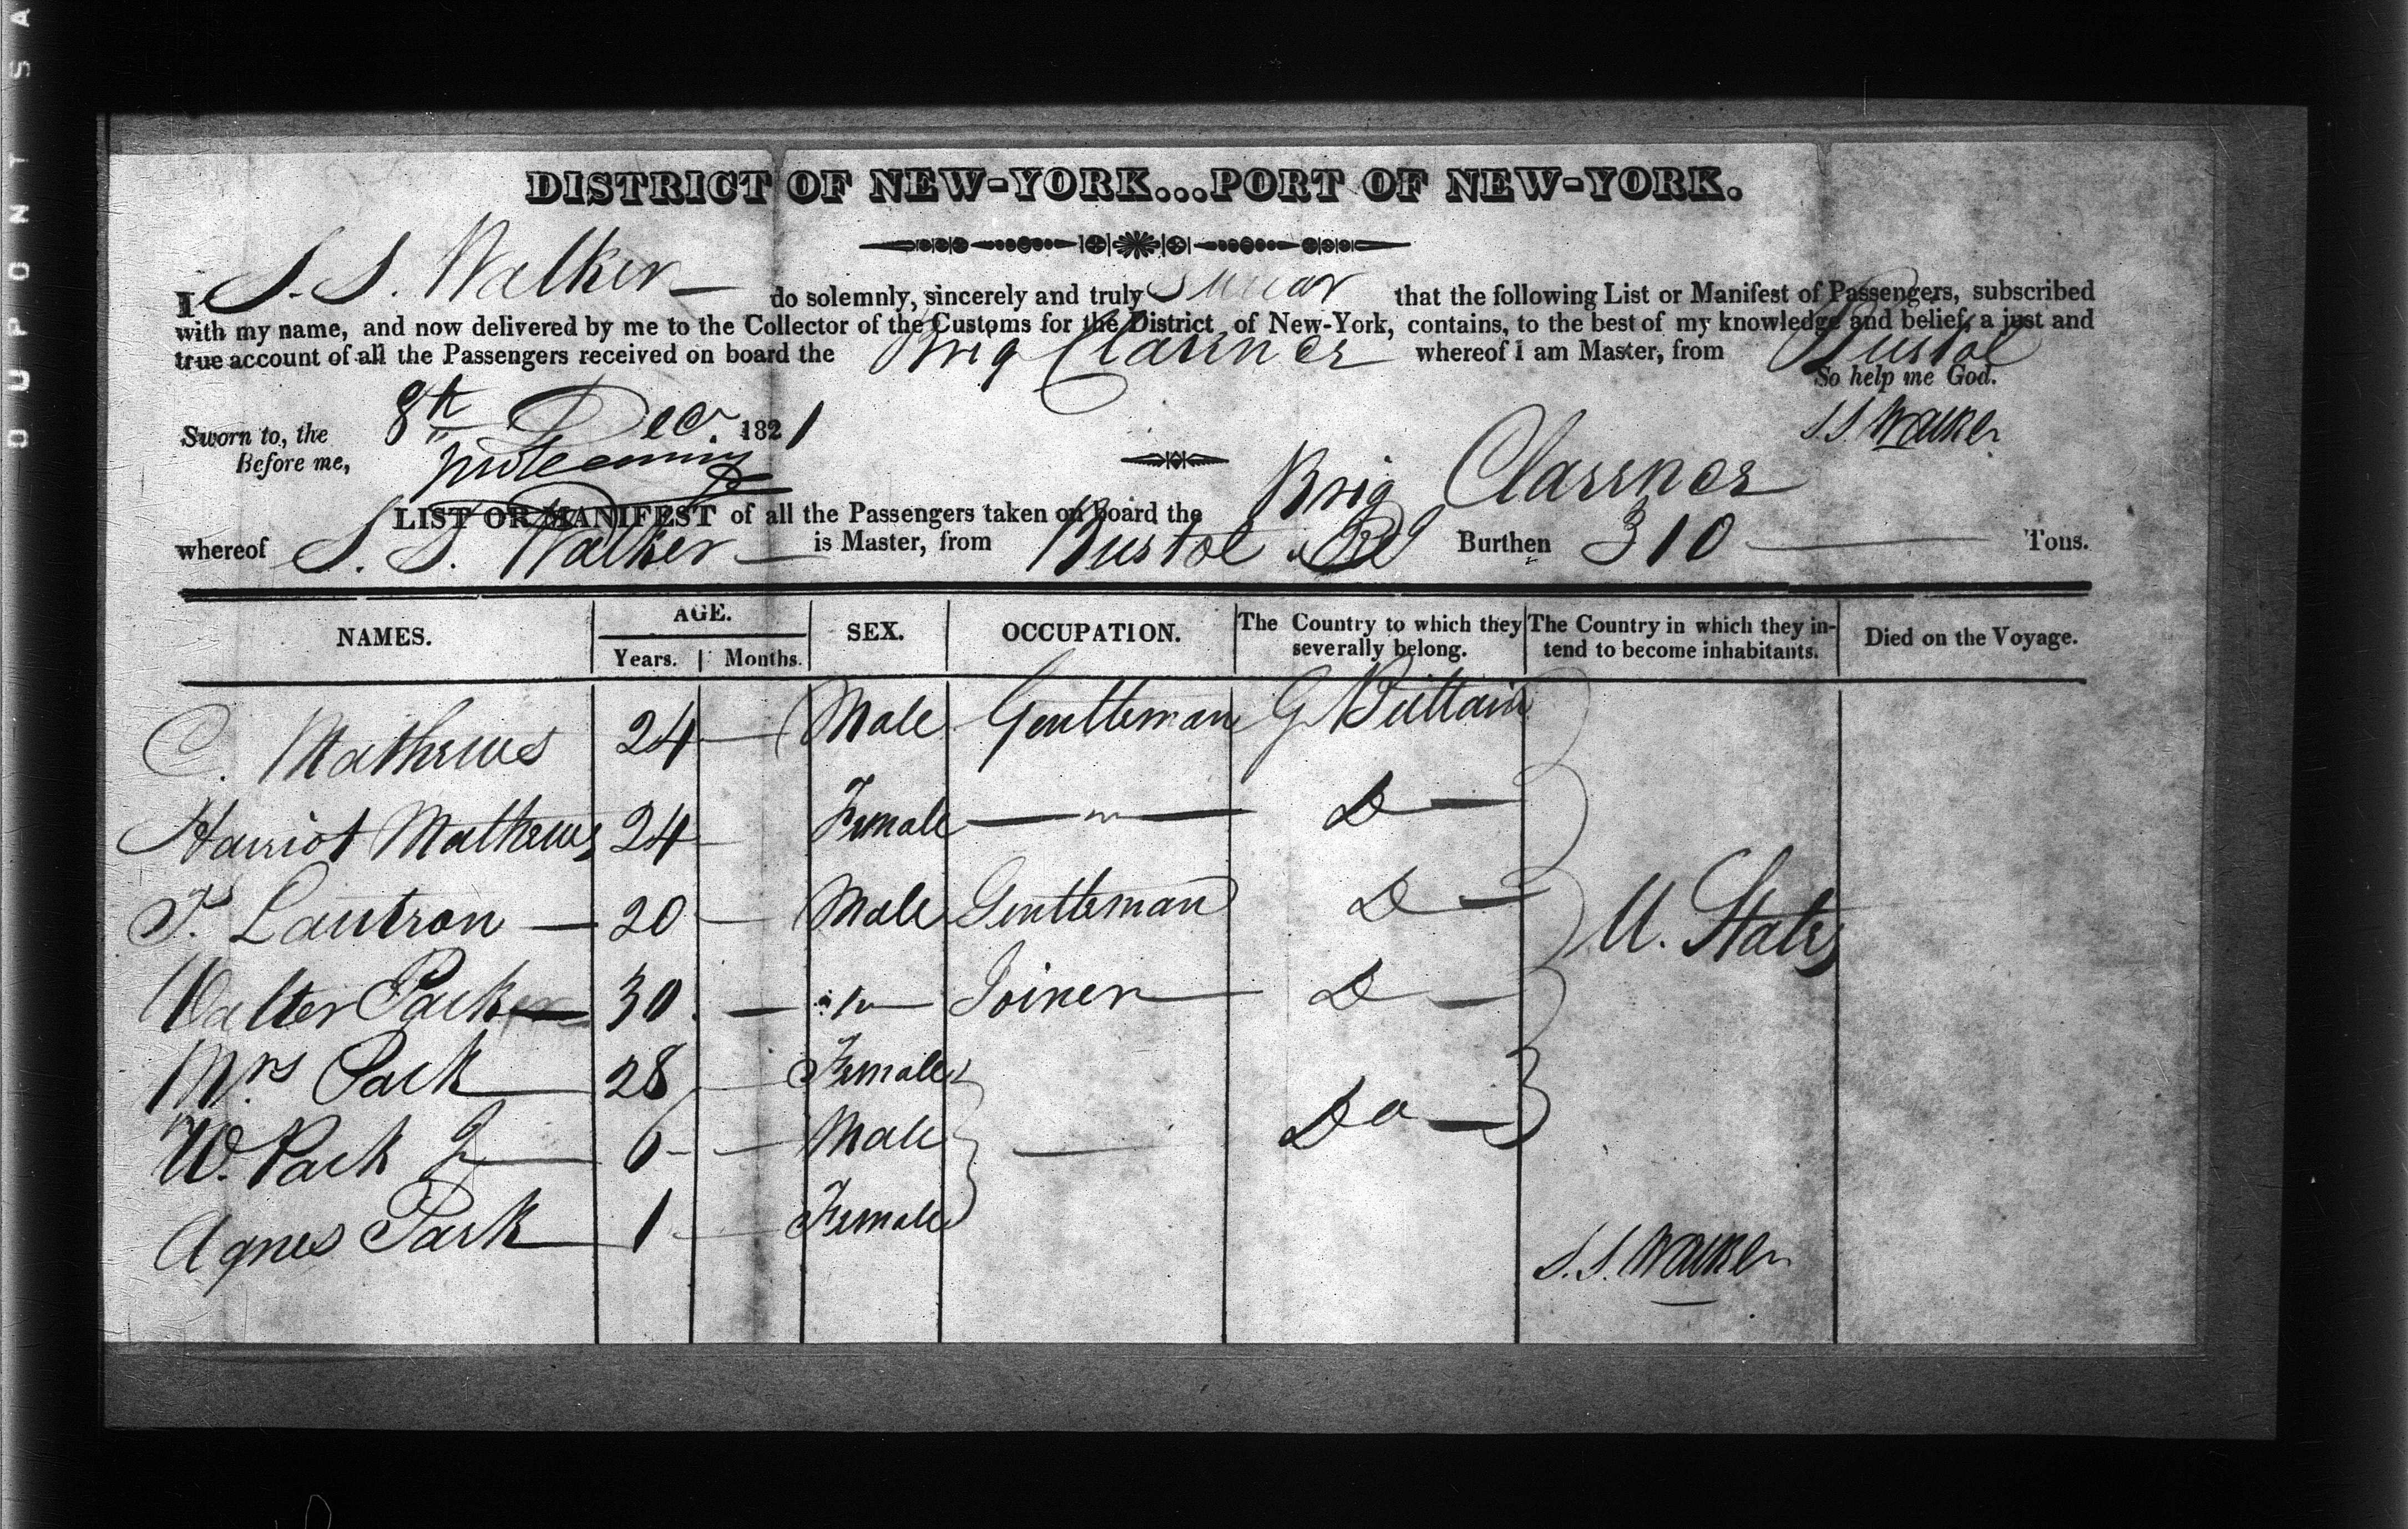 DUPONT SA
DISTRICT OF NEW-YORK...PORT OF NEW-YORK.
I S. S. Walker do solemnly, sincerely and truly Swear that the following List or Manifest of Passengers, subscribed
with my name, and now delivered by me to the Collector of the Customs for the District of New-York, contains, to the best of my knowledge and belief, a just and
true account of all the Passengers received on board the Brig Clarence whereof I am Master, from Bristol
So help me God.
Sworn to, the 8th Dec. 1821 S S Walker
Before me,
LIST OR MANIFEST of all the Passengers taken on board the Brig Clarence
whereof S. S. Walker is Master, from Bristol Burthen 310 Tons.
NAMES. AGE. SEX. OCCUPATION. The Country to which they severally belong. The Country in which they intend to become inhabitants. Died on the Voyage.
Years. Months.
C. Mathews 24 — Male Gentleman G Brittain
Harriot Mathews 24 — Female — " — D —
T. Lautron — 20 — Male Gentleman D —
Walter Park — 30 — Joiner — D — U. States
Mrs Park — 28 — Female
W. Park Jr — 6 — Male — Do —
Agnes Park — 1 — Female
S. S. Walker